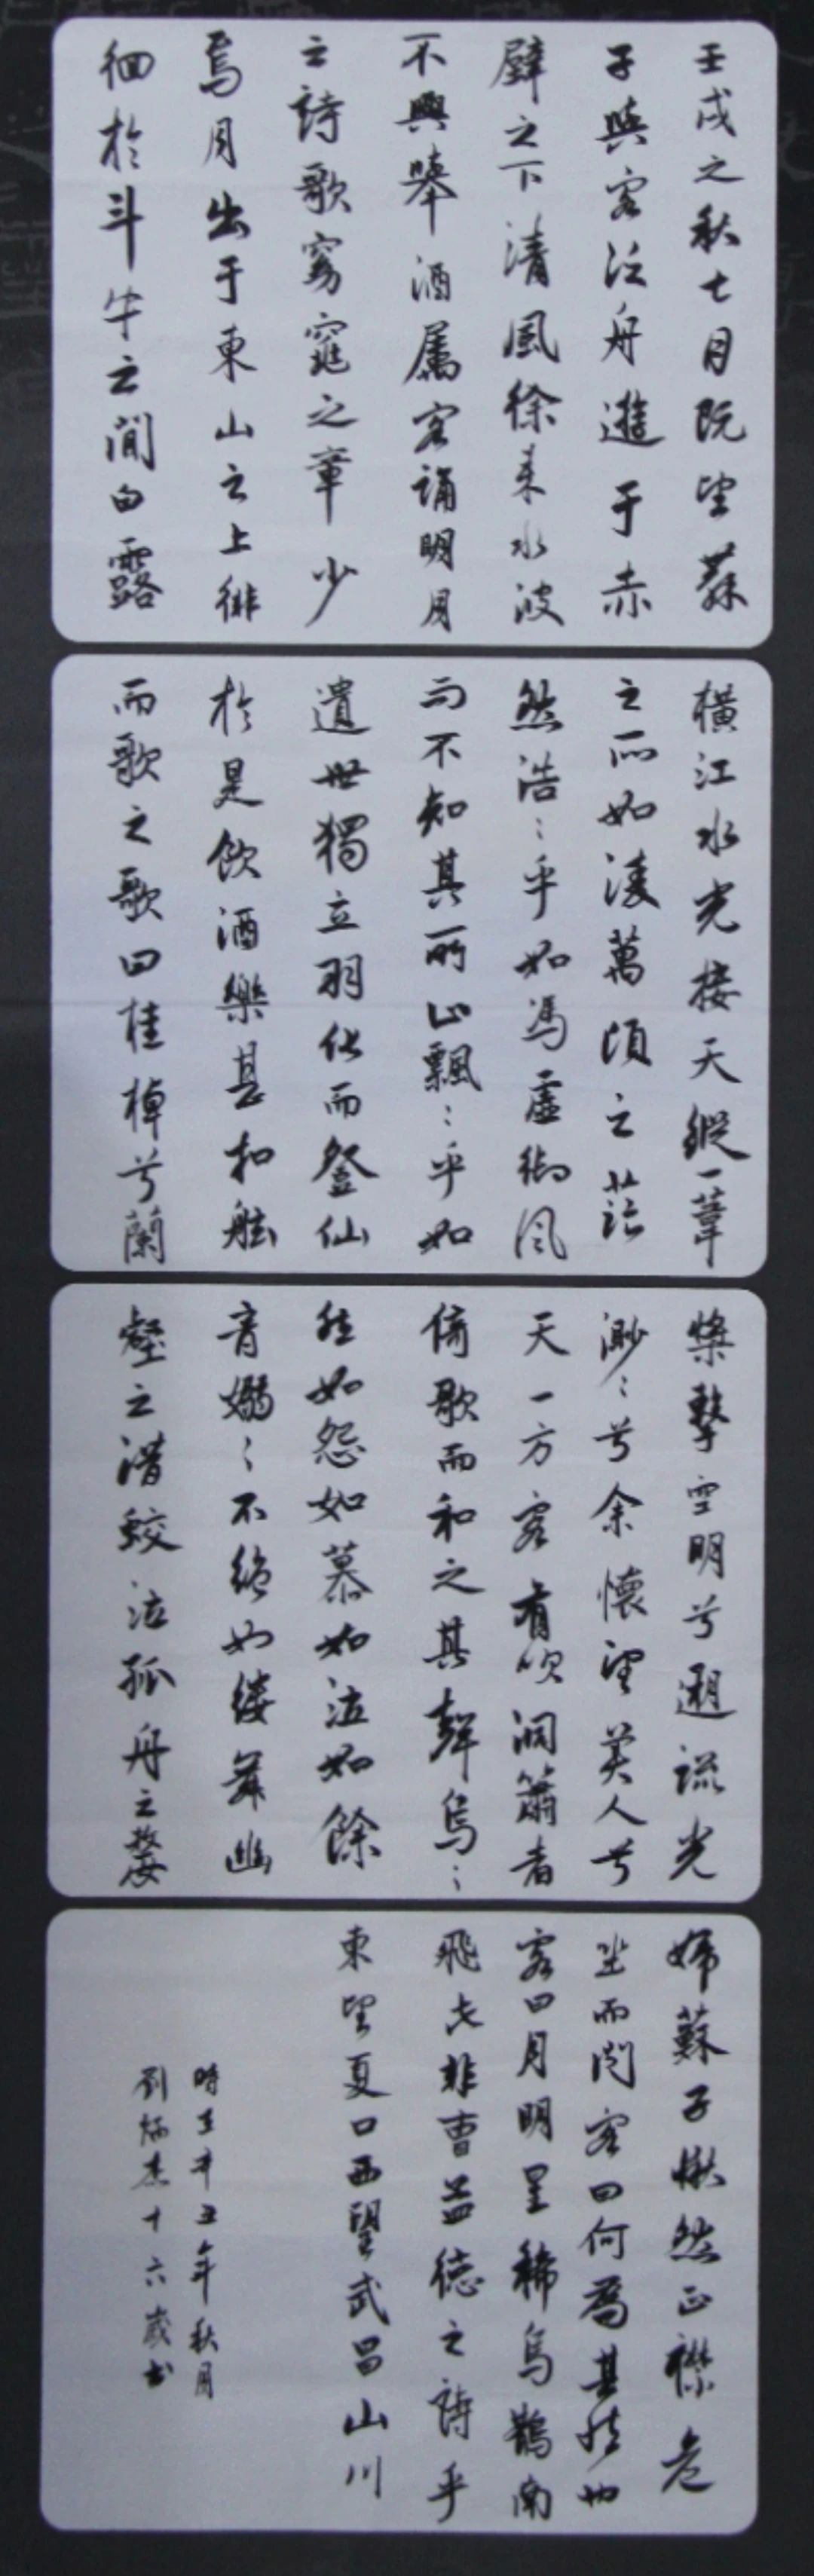 壬戌之秋七月既望蘇
子與客泛舟遊于赤
壁之下清風徐来水波
不興舉酒属客誦明月
之詩歌窈窕之章少
焉月出于東山之上徘
徊於斗牛之間白露
橫江水光接天縱一葦
之所如淩萬頃之茫
然浩〻乎如馮虛御風
而不知其所止飄〻乎如
遺世獨立羽化而登仙
於是飲酒樂甚扣舷
而歌之歌曰桂棹兮蘭
槳擊空明兮遡流光
渺〻兮余懷望美人兮
天一方客有吹洞簫者
倚歌而和之其聲烏〻
然如怨如慕如泣如餘
音嫋〻不絕如縷舞幽
壑之潛蛟泣孤舟之嫠
婦蘇子愀然正襟危
坐而問客曰何為其然也
客曰月明星稀烏鵲南
飛此非曹孟德之詩乎
東望夏口西望武昌山川
時在辛丑年秋月
劉炳杰十六歲書